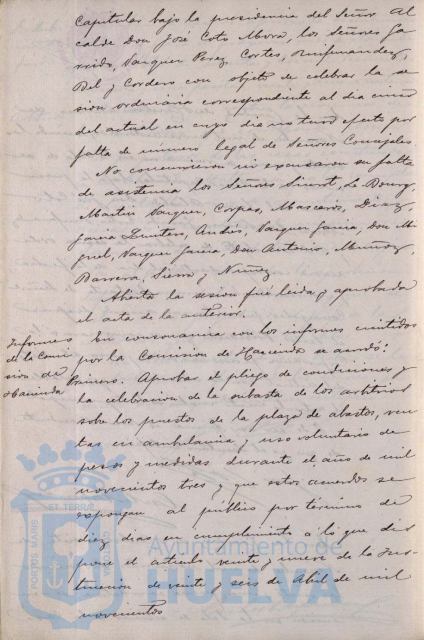 Capitular bajo la presidencia del Señor Al
calde Don José Coto Mora, los Señores Ga
rrido, Vazquez Perez, Cortes, Ruifernandez,
Rel y Cordero con objeto de celebrar la se
sion ordinaria correspondiente al dia cinco
del actual en cuyo dia no tuvo efecto por
falta de numero legal de Señores Concejales.
No concurrieron ni excusaron su falta
de asistencia los Señores Le Bourg,
Martin Vazquez, Corpas, Mascaros, Diaz,
Garcia Quintero, Vazquez Garcia, Don Mi
guel, Vazquez Garcia, Don Antonio, Muñoz,
Barrera, Sierra y Nuñez.
Abierta la sesion fué leida y aprobada
el acta de la anterior.
Informes
de la Comi
sion de
Hacienda
En consonancia con los informes emitidos
por la Comision de Hacienda se acordó:
Primero. Aprobar el pliego de condiciones y
la celebracion de la subasta de los arbitrios
sobre los puestos de la plaza de abastos, ven
tas en ambulancia y uso voluntario de
pesos y medidas durante el año de mil
novecientos tres y que estos acuerdos se
expongan al publico por término de
diez dias en cumplimiento á lo que dis
pone el articulo veinte y nueve de la Ins
truccion de veinte y seis de Abril de mil
novecientos
PORTUS MARIS
ET TERRE
Ayuntamiento de
HUELVA